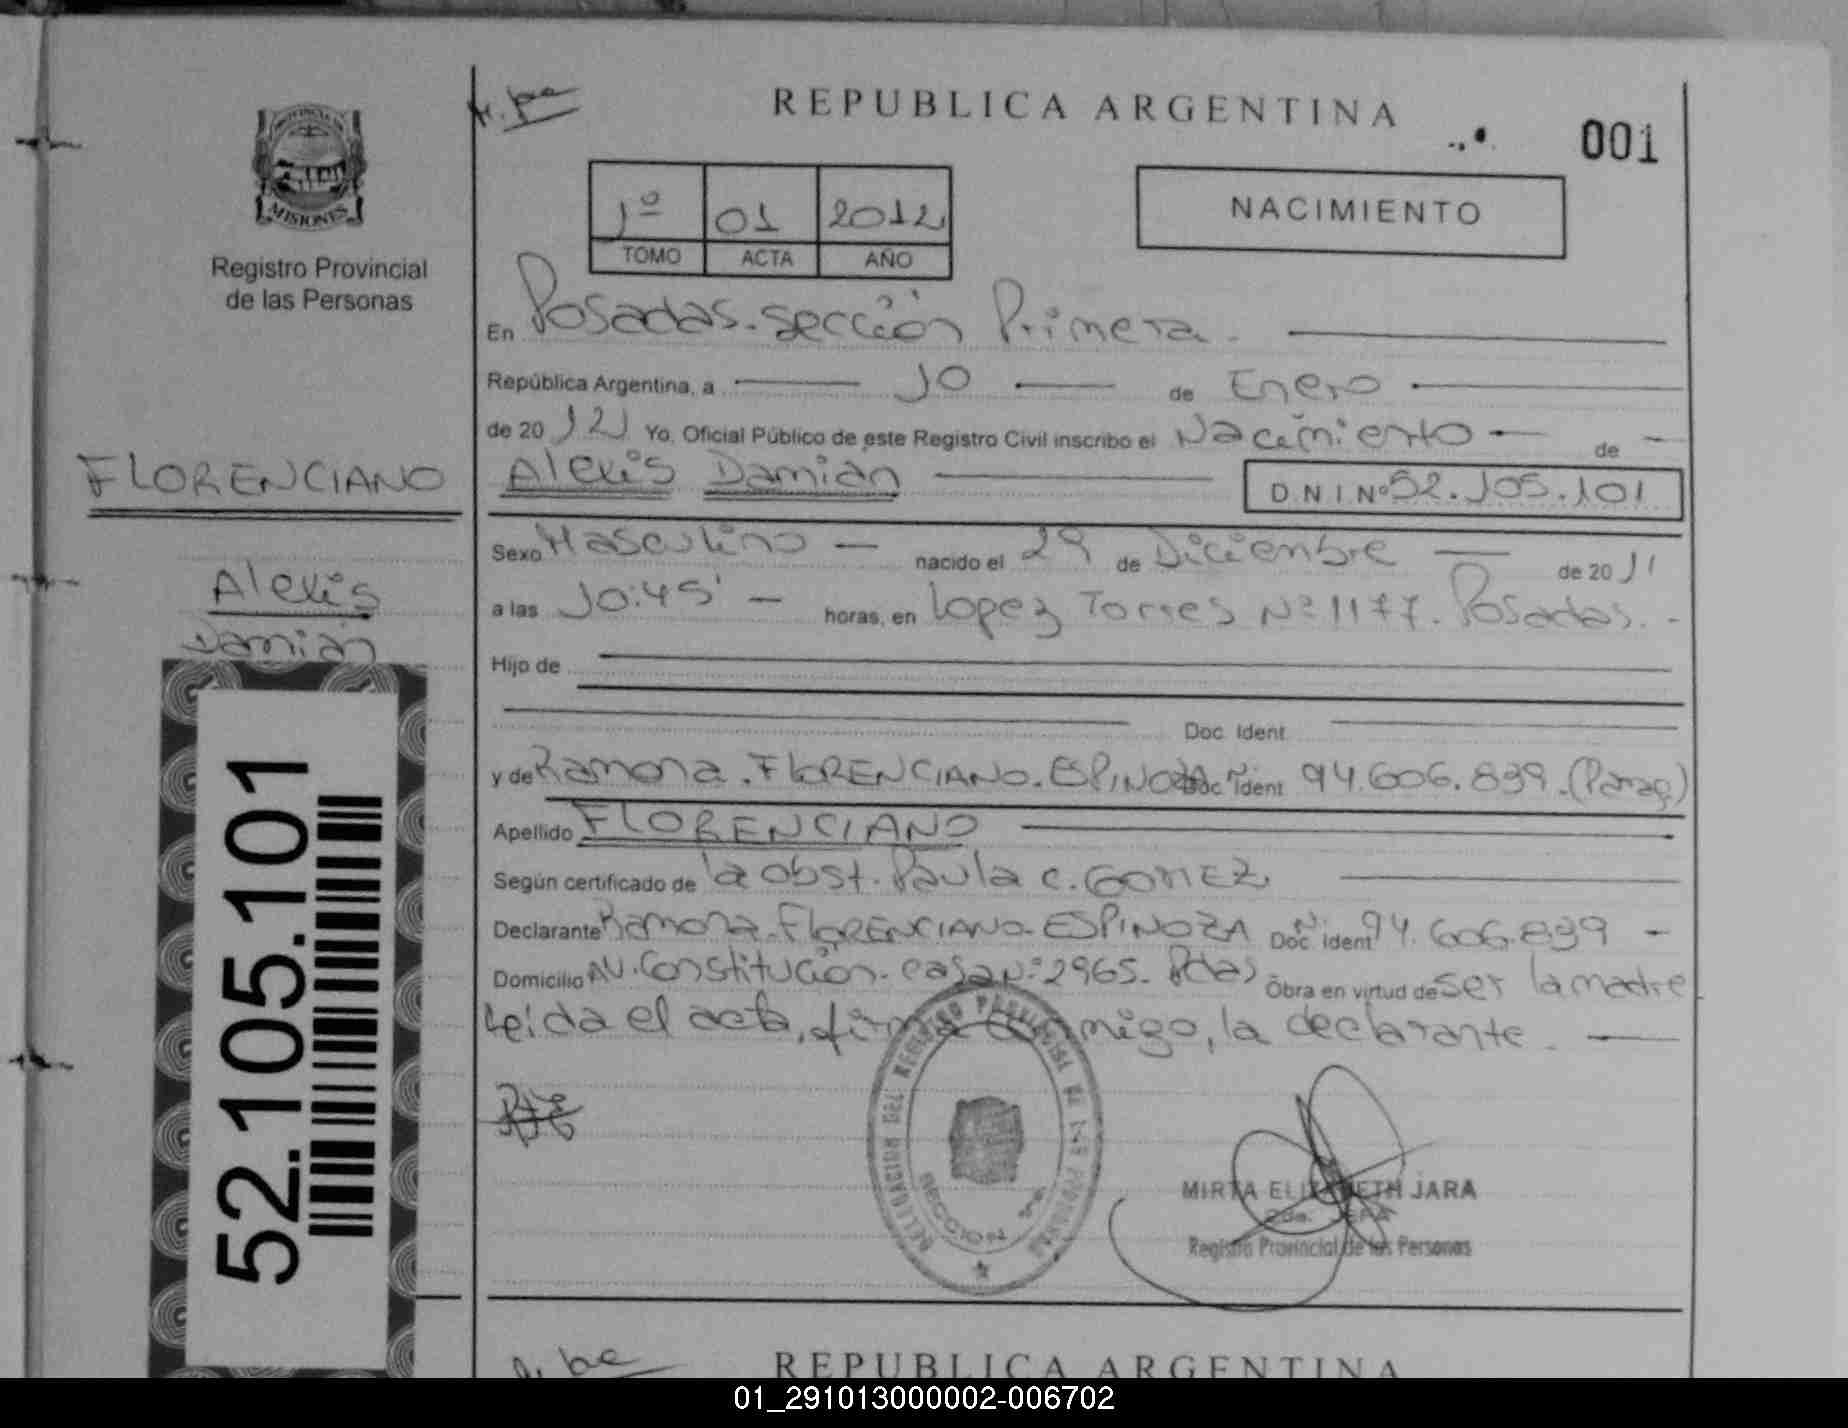 REPUBLICA ARGENTINA
001
PROVINCIA DE
MISIONES
Registro Provincial
de las Personas
1º 01 2012
TOMO ACTA AÑO
NACIMIENTO
En Posadas. Sección Primera.
República Argentina, a 10 de Enero
de 2012 Yo, Oficial Público de este Registro Civil inscribo el Nacimiento de
FLORENCIANO
Alexis Damián
D.N.I. Nº 52.105.101
Sexo Masculino nacido el 29 de Diciembre de 2011
Alexis
Damián
a las 10:45' horas, en Lopez Torres Nº 1177. Posadas.
Hijo de
Doc. Ident.
y de Ramona. FLORENCIANO. ESPINOZA Doc. Ident. Nº 94.606.839. (Parag)
Apellido FLORENCIANO
Según certificado de la obst. Paula C. GOMEZ
Declarante Ramona. FLORENCIANO. ESPINOZA Doc. Ident. Nº 94.606.839
Domicilio AV. Constitución. casa Nº 2965. Pdas Obra en virtud de ser la madre
Leída el acta, firma conmigo, la declarante.
52.105.101
DELEGACION DEL REGISTRO PROVINCIAL DE LAS PERSONAS
SECCION 1ra.
MIRTA ELIZABETH JARA
2da. JEFA
Registro Provincial de las Personas
REPUBLICA ARGENTINA
01_291013000002-006702